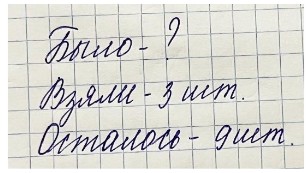 Было - ?
Взяли - 3 шт.
Осталось - 9 шт.